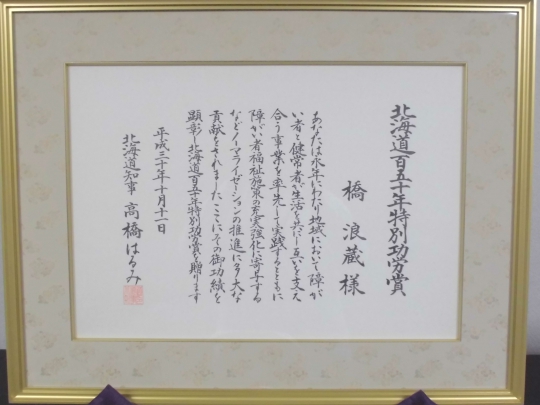 北海道百五十年特別功労賞
橋 浪蔵様
あなたは永年にわたり地域において障が
い者と健常者が生活を共にし互いを支え
合う事業を率先して実践するとともに
障がい者福祉施策の充実強化に寄与する
などノーマライゼーションの推進に多大な
貢献をされましたここにその御功績を
顕彰し北海道百五十年特別功労賞を贈ります
平成三十年十月十一日
北海道知事 高橋はるみ